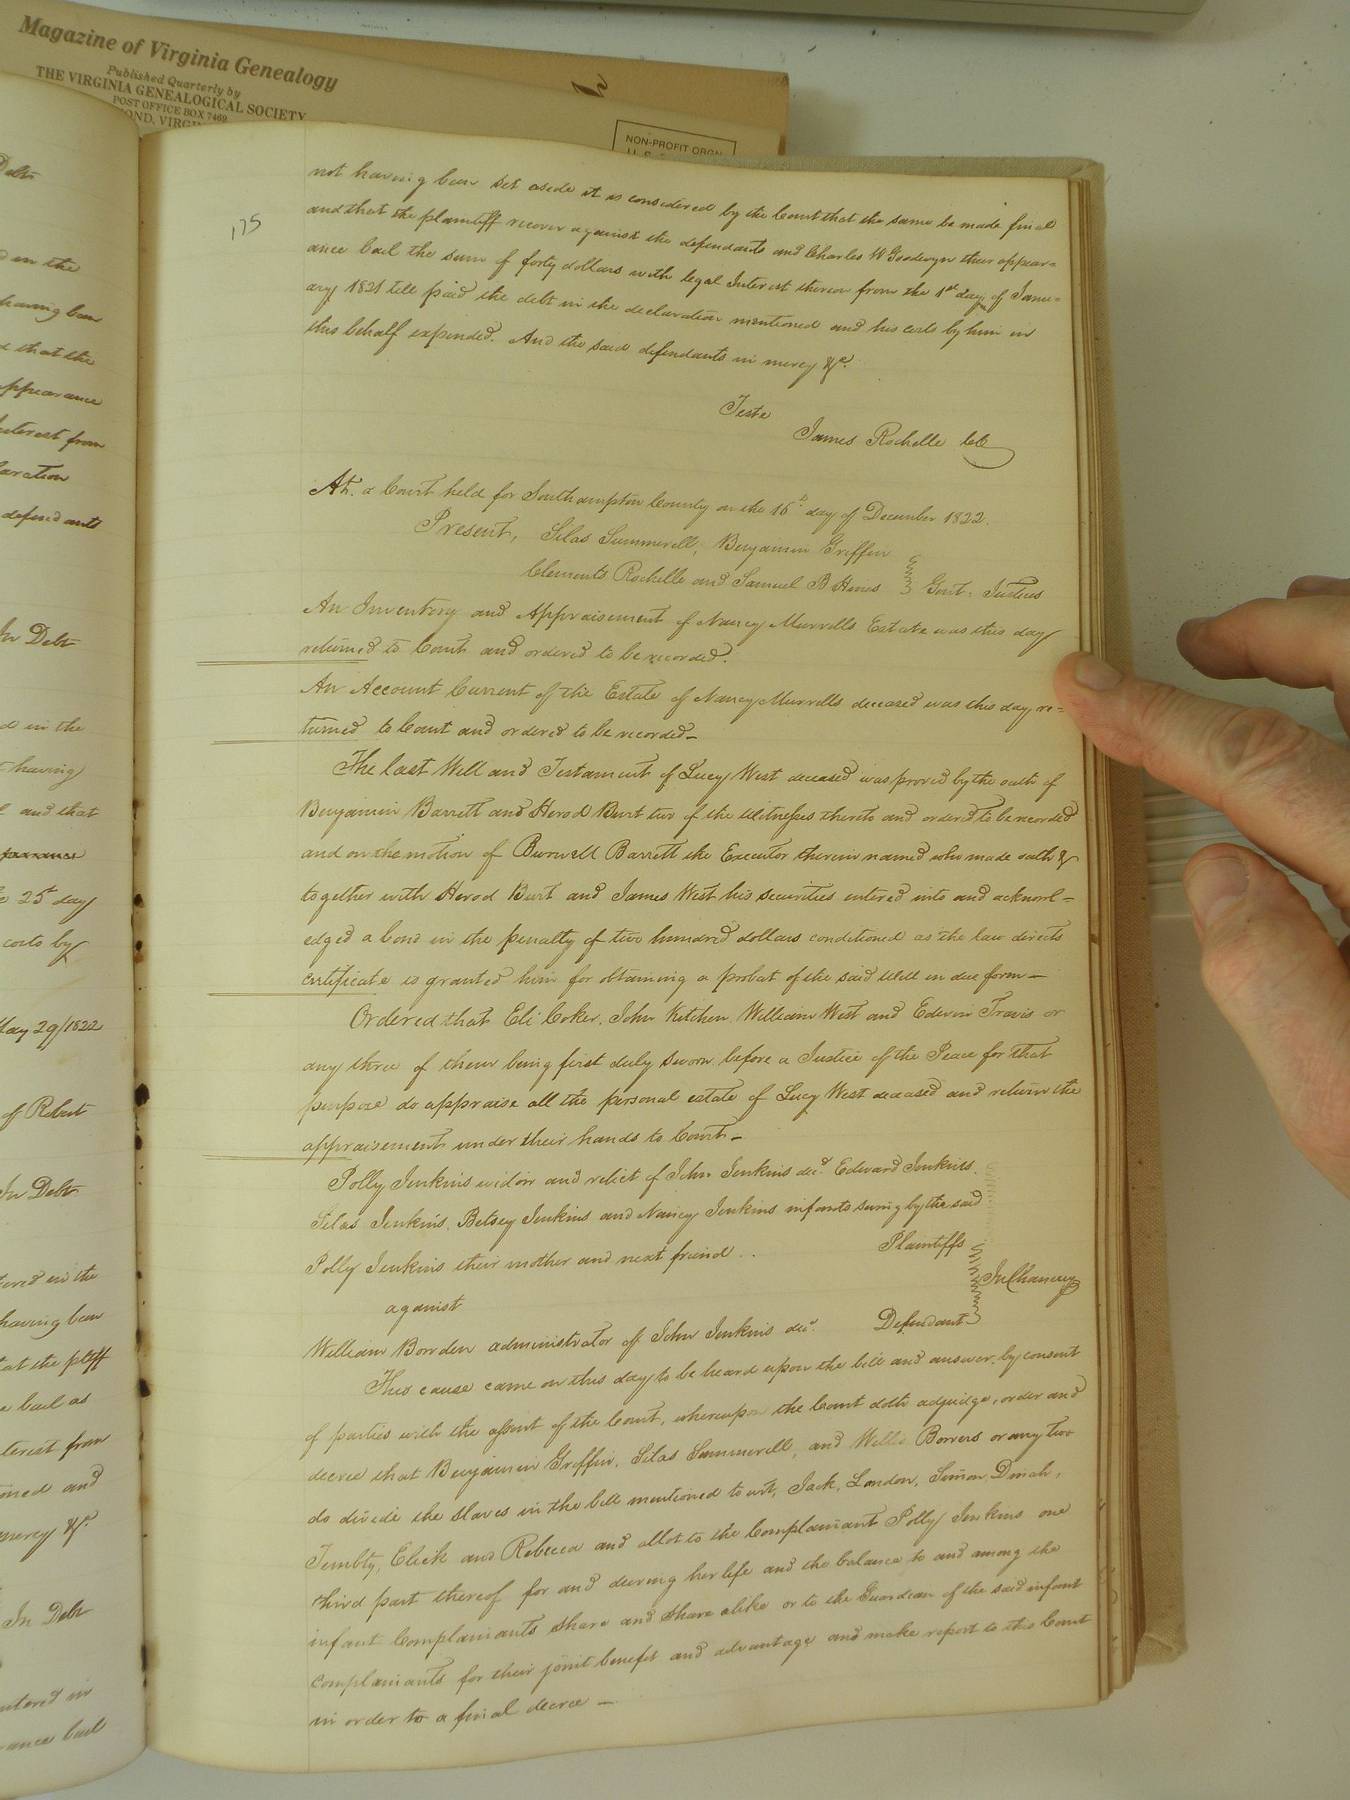 Magazine of Virginia Genealogy
Published Quarterly by
THE VIRGINIA GENEALOGICAL SOCIETY
POST OFFICE BOX 7469
NON-PROFIT ORGN
175
not having been set aside it is considered by the Court that the same be made final
and that the plaintiff recover against the defendants and Charles W Goodwyn their appear=
ance bail the sum of forty dollars with legal Interest thereon from the 1st day of Janu=
ary 1821 till paid the debt in the declaration mentioned and his costs by him in
this behalf expended. And the said defendants in mercy &c.
Teste
James Rochelle
At a Court held for Southampton County on the 16th day of December 1822.
Present, Silas Summerell, Benjamin Griffin
Clements Rochelle and Samuel B Hines Gent: Justices
An Inventory and Appraisement of Nancy Murrells Estate was this day
returned to Court and ordered to be recorded.
An Account Current of the Estate of Nancy Murrells deceased was this day re=
turned to Court and ordered to be recorded_
The last Will and Testament of Lucy West deceased was proved by the oath of
Benjamin Barrett and Herod Burt two of the Witnesses thereto and ordered to be recorded
and on the motion of Burwell Barrett the Executor therein named who made oath &
together with Herod Burt and James West his securities entered into and acknowl=
edged a bond in the penalty of two hundred dollars conditioned as the law directs
certificate is granted him for obtaining a probat of the said Will in due form_
Ordered that Eli Coker, John Kitchen William West and Edwin Travis or
any three of them being first duly sworn before a Justice of the Peace for that
purpose do appraise all the personal estate of Lucy West deceased and return the
appraisement under their hands to Court_
Polly Jenkins widow and relict of John Jenkins decd. Edward Jenkins,
Silas Jenkins, Betsey Jenkins and Nancy Jenkins infants suing by the said
Polly Jenkins their mother and next friend .. Plaintiffs
In Chancery
against
William Bowden administrator of John Jenkins decd. Defendant
This cause came on this day to be heard upon the bill and answer, by consent
of parties with the assent of the Court, whereupon the Court doth adjudge, order and
decree that Benjamin Griffin, Silas Summerell, and Willie Bowers or any two
do divide the slaves in the bill mentioned to wit, Jack, London, Simon, Dinah,
Elick and Rebecca and allot to the Complainant Polly Jenkins one
third part thereof for and during her life and the balance to and among the
infant Complainants share and share alike or to the Guardian of the said infant
complainants for their joint benefit and advantage and make report to this Court
in order to a final decree _
Debt
d in the
having been
d that the
appearance
interest from
laration
defendants
In Debt
d in the
having
and that
25th day
costs by
May 29/1822
of Robert
In Debt
tered in the
having been
that the pltff
bail as
terest from
oned and
mercy &c.
In Debt
ntered in
rance bail